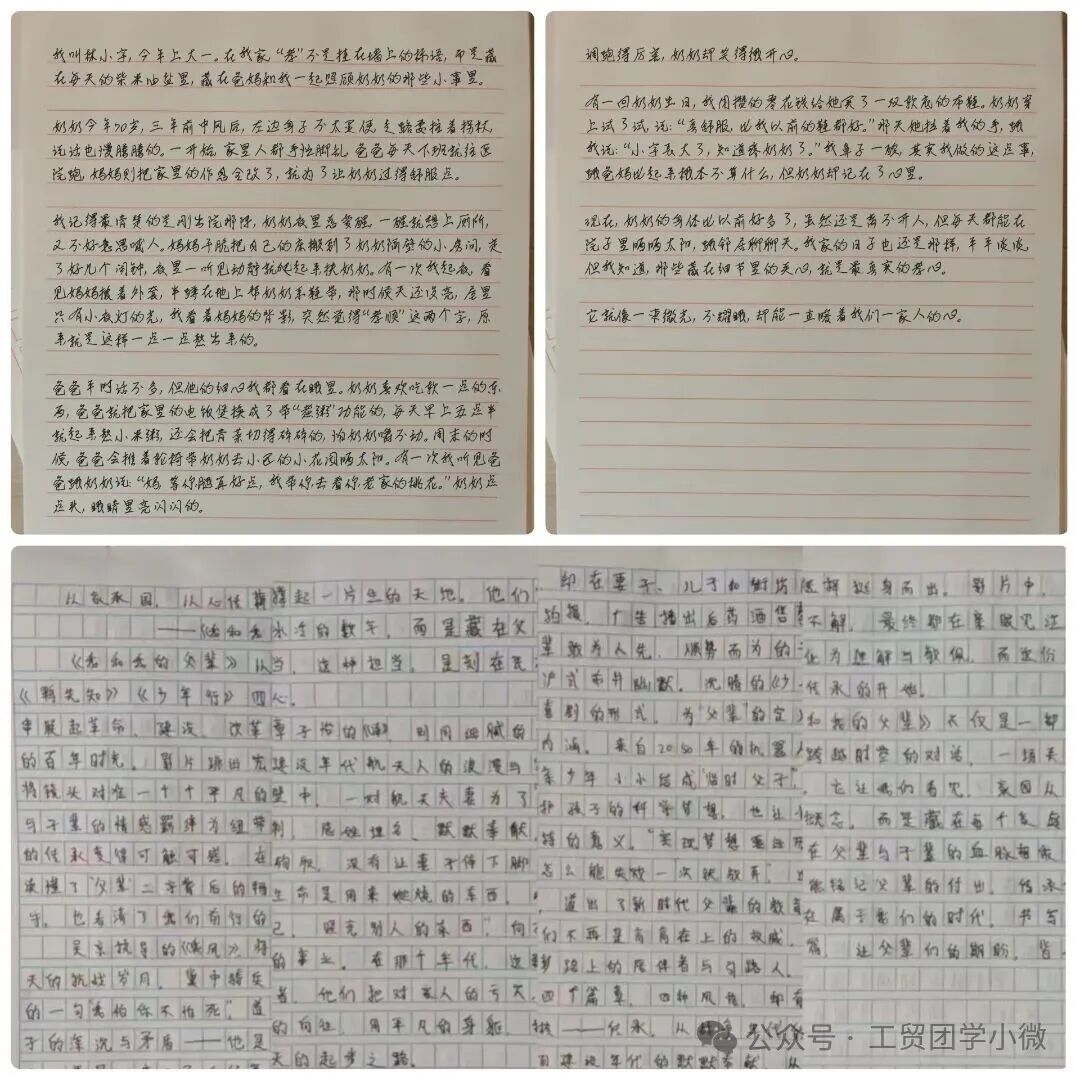 我叫林小字,今年上大一。在我家“孝”不是挂在墙上的标语,而是藏
在每天的柴米油盐里,藏在爸妈和我一起照顾奶奶的那些小事里。
奶奶今年70岁,三年前中风后,左边身子不太灵便,走路需拄着拐杖,
说话也慢腾腾的。一开始,家里人都手忙脚乱,爸爸每天下班就往医
院跑,妈妈则把家里的作息全改了,就为了让奶奶过得舒服点。
我记得最清楚的是刚出院那阵,奶奶夜里总爱醒,一醒就想上厕所,
又不好意思喊人。妈妈干脆把自己的床搬到了奶奶隔壁的小房间,定
了好几个闹钟,夜里一听见动静就爬起来扶奶奶。有一次我起夜,看
见妈妈披着外套,半蹲在地上帮奶奶系鞋带,那时候天还没亮,屋里
只有小夜灯的光,我看着妈妈的背影,突然觉得“孝顺”这两个字,原
来就是这样一点一点熬出来的。
爸爸平时话不多,但他的细心我都看在眼里。奶奶喜欢吃软一点的东
西,爸爸就把家里的电饭煲换成了带“煮粥”功能的,每天早上五点半
就起来熬小米粥,还会把青菜切得碎碎的,怕奶奶嚼不动。周末的时
候,爸爸会推着轮椅带奶奶去小区的小花园晒太阳。有一次我听见爸
爸跟奶奶说:“妈,等你腿再好点,我带你去看你老家的桃花。”奶奶点
点头,眼睛里亮闪闪的。
调跑得厉害,奶奶却笑得很开心。
有一回奶奶生日,我用攒的零花钱给她买了一双软底的布鞋。奶奶穿
上试了试,说:“真舒服,比我以前的鞋都好。”那天她拉着我的手,跟
我说:“小字长大了,知道疼奶奶了。”我鼻子一酸,其实我做的这点事,
跟爸妈比起来根本不算什么,但奶奶却记在了心里。
现在,奶奶的身体比以前好多了,虽然还是离不开人,但每天都能在
院子里晒晒太阳,跟邻居聊聊天。我家的日子也还是那样,平平淡淡,
但我知道,那些藏在细节里的关心,就是最真实的孝心。
它就像一束微光,不耀眼,却能一直暖着我们一家人的心。
从
《我和我的父辈》从
《鸭先知》《少年行》四
串联起革命、建设、改革
的百年时光。影片跳出宏
将镜头对准一个个平凡的
与子辈的情感羁绊为纽带
的传承变得可触可感。在
读懂了“父辈”二字背后的
守,也看清了我们前行的
吴京执导的《乘风》将
天的抗战岁月。冀中骑兵
的一句“我怕你不怕死”,道
子的深沉与矛盾——他是
起一片生的天地。他们
水泛的数字,而是藏在父
当。这种担当,是刻在民
心。
章子怡的《诗》则用细腻的
建设年代航天人的浪漫与
中,一对航天夫妻为了
隐姓埋名、默默奉献
没有让妻子停下脚
生命是用来燃烧的东西,
己,照亮别人的东西”,何
的事业。在那个年代,这
者,他们把对家人的亏欠
的向往,用平凡的身躯,
天的起步之路。
却在妻子、儿子和街坊
广告播出后药酒售
辈敢为人先、顺势而为的
沪式市井幽默。沈腾的《少
喜剧的形式,为“父辈”的定
内涵。来自2050年的机器
条少年小小结成“临时父子”,
护孩子的科学梦想,也让
特的意义。“实现梦想
怎么能失败一次就放弃”
道出了新时代父辈的教育
们不再是高高在上的权威,
路上的陪伴者与引路人。
四个篇章,四种风格,却有
——传承。从
挺身而出。影片中,
不解,最终都在亲眼见证
化为理解与敬佩,而这份
传承的开始。
和我的父辈》不仅是一部
跨越时空的对话,一场关
它让我们看见,家国从
概念,而是藏在每个家庭
在父辈与子辈的血脉相承
能铭记父辈的付出,传承
在属于我们的时代,书写
篇,让父辈们的期盼,皆
公众号·工贸团学小微